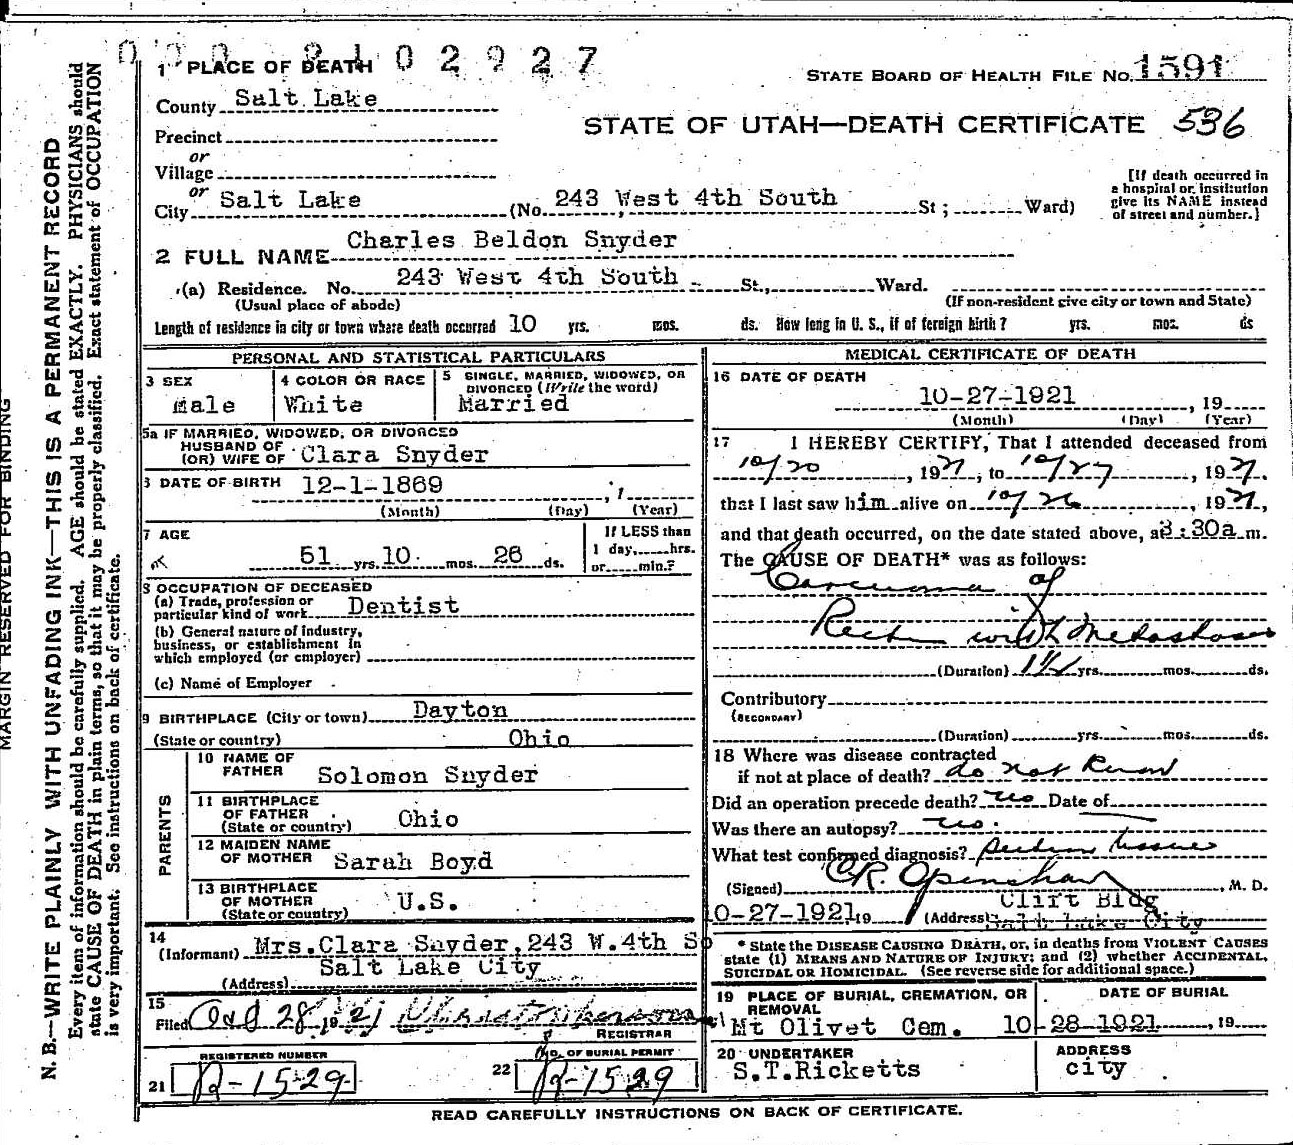 1 PLACE OF DEATH 02927
STATE BOARD OF HEALTH FILE NO. 1591
County Salt Lake
STATE OF UTAH—DEATH CERTIFICATE 536
Precinct
or
Village
or
City Salt Lake (No. 243 West 4th South St; Ward)
[If death occurred in a hospital or institution give its NAME instead of street and number.]
2 FULL NAME Charles Beldon Snyder
(a) Residence. No. 243 West 4th South St., Ward.
(Usual place of abode) (If non-resident give city or town and State)
Length of residence in city or town where death occurred 10 yrs. mos. ds. How long in U. S., if of foreign birth? yrs. mos. ds
PERSONAL AND STATISTICAL PARTICULARS
3 SEX Male
4 COLOR OR RACE White
5 SINGLE, MARRIED, WIDOWED, OR DIVORCED (Write the word) Married
5a IF MARRIED, WIDOWED, OR DIVORCED
HUSBAND OF
(OR) WIFE OF Clara Snyder
6 DATE OF BIRTH 12-1-1869
(Month) (Day) (Year)
7 AGE 51 yrs. 10 mos. 26 ds.
If LESS than
1 day, hrs.
or min.?
8 OCCUPATION OF DECEASED
(a) Trade, profession or
particular kind of work Dentist
(b) General nature of industry,
business, or establishment in
which employed (or employer)
(c) Name of Employer
9 BIRTHPLACE (City or town) Dayton
(State or country) Ohio
PARENTS
10 NAME OF FATHER Solomon Snyder
11 BIRTHPLACE OF FATHER (State or country) Ohio
12 MAIDEN NAME OF MOTHER Sarah Boyd
13 BIRTHPLACE OF MOTHER (State or country) U.S.
14
(Informant) Mrs.Clara Snyder,243 W.4th So
(Address) Salt Lake City
15
Filed Oct 28, 1921
REGISTRAR
REGISTERED NUMBER
21 R-1529
No. OF BURIAL PERMIT
22 R-1529
MEDICAL CERTIFICATE OF DEATH
16 DATE OF DEATH
10-27-1921, 19
(Month) (Day) (Year)
17 I HEREBY CERTIFY, That I attended deceased from
10/20, 1921, to 10/27, 1921,
that I last saw him alive on 10/26, 1921,
and that death occurred, on the date stated above, at 3:30a m.
The CAUSE OF DEATH* was as follows:
Carcinoma of
Rectum with Metastases
(Duration) 1 1/2 yrs. mos. ds.
Contributory
(SECONDARY)
(Duration) yrs. mos. ds.
18 Where was disease contracted
if not at place of death? do not know
Did an operation precede death? no Date of
Was there an autopsy? no.
What test confirmed diagnosis?
(Signed) CR Openshaw, M. D.
0-27-1921 19 (Address) Clift Bldg
Salt Lake City
* State the DISEASE CAUSING DEATH, or, in deaths from VIOLENT CAUSES
state (1) MEANS AND NATURE OF INJURY; and (2) whether ACCIDENTAL,
SUICIDAL OR HOMICIDAL. (See reverse side for additional space.)
19 PLACE OF BURIAL, CREMATION, OR REMOVAL
Mt Olivet Cem.
DATE OF BURIAL
10-28-1921, 19
20 UNDERTAKER
S.T.Ricketts
ADDRESS
city
READ CAREFULLY INSTRUCTIONS ON BACK OF CERTIFICATE.
MARGIN RESERVED FOR BINDING
N. B.—WRITE PLAINLY WITH UNFADING INK—THIS IS A PERMANENT RECORD
Every item of information should be carefully supplied. AGE should be stated EXACTLY. PHYSICIANS should
state CAUSE OF DEATH in plain terms, so that it may be properly classified. Exact statement of OCCUPATION
is very important. See instructions on back of certificate.